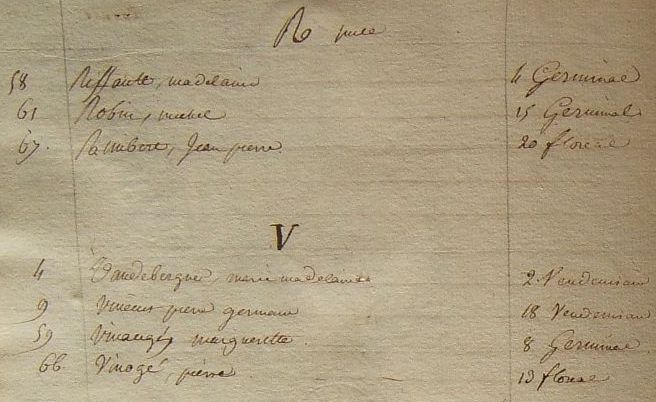 R suite
58 Reffaute, madelaine 4 Germinal
61 Robin, michel 15 Germinal
67. Rambert, Jean pierre 20 floreal
V
4 Vandebergue, marie madelaine 2 Vendemiaire
9 Vincent pierre germain 18 Vendemiaire
59 Vinaugé, marguerette 8 Germinal
66 Vinogé, pierre 13 floreal